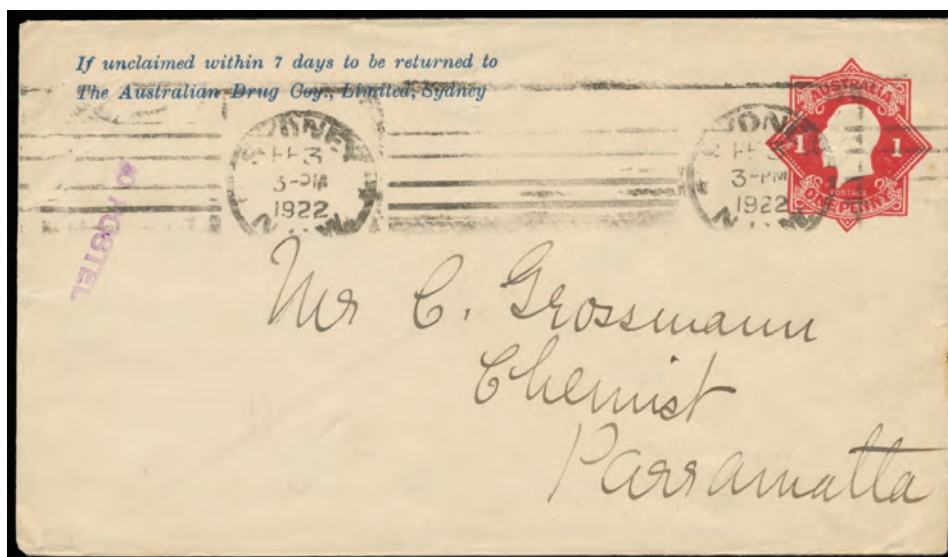 If unclaimed within 7 days to be returned to
The Australian Drug Coy., Limited, Sydney
SYDNEY
3-PM
1922
SYDNEY
3-PM
1922
AUSTRALIA
1 1
POSTAGE
ONE PENNY
POSTEL
Mr C. Grossmann
Chemist
Parramatta